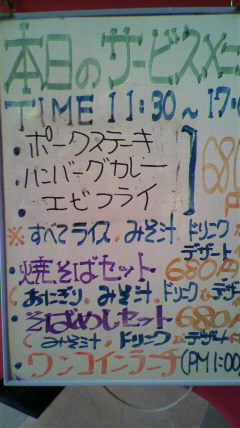 本日のサービスメニ
TIME 11:30~17:
・ポークステーキ
・ハンバーグカレー
・エビフライ
680円
※すべてライス、みそ汁、ドリンク
デザート
・焼そばセット 680円
(おにぎり、みそ汁、ドリンク、デザ
・そばめしセット 680
(みそ汁、ドリンク、デザート
・ワンコインランチ(PM1:00